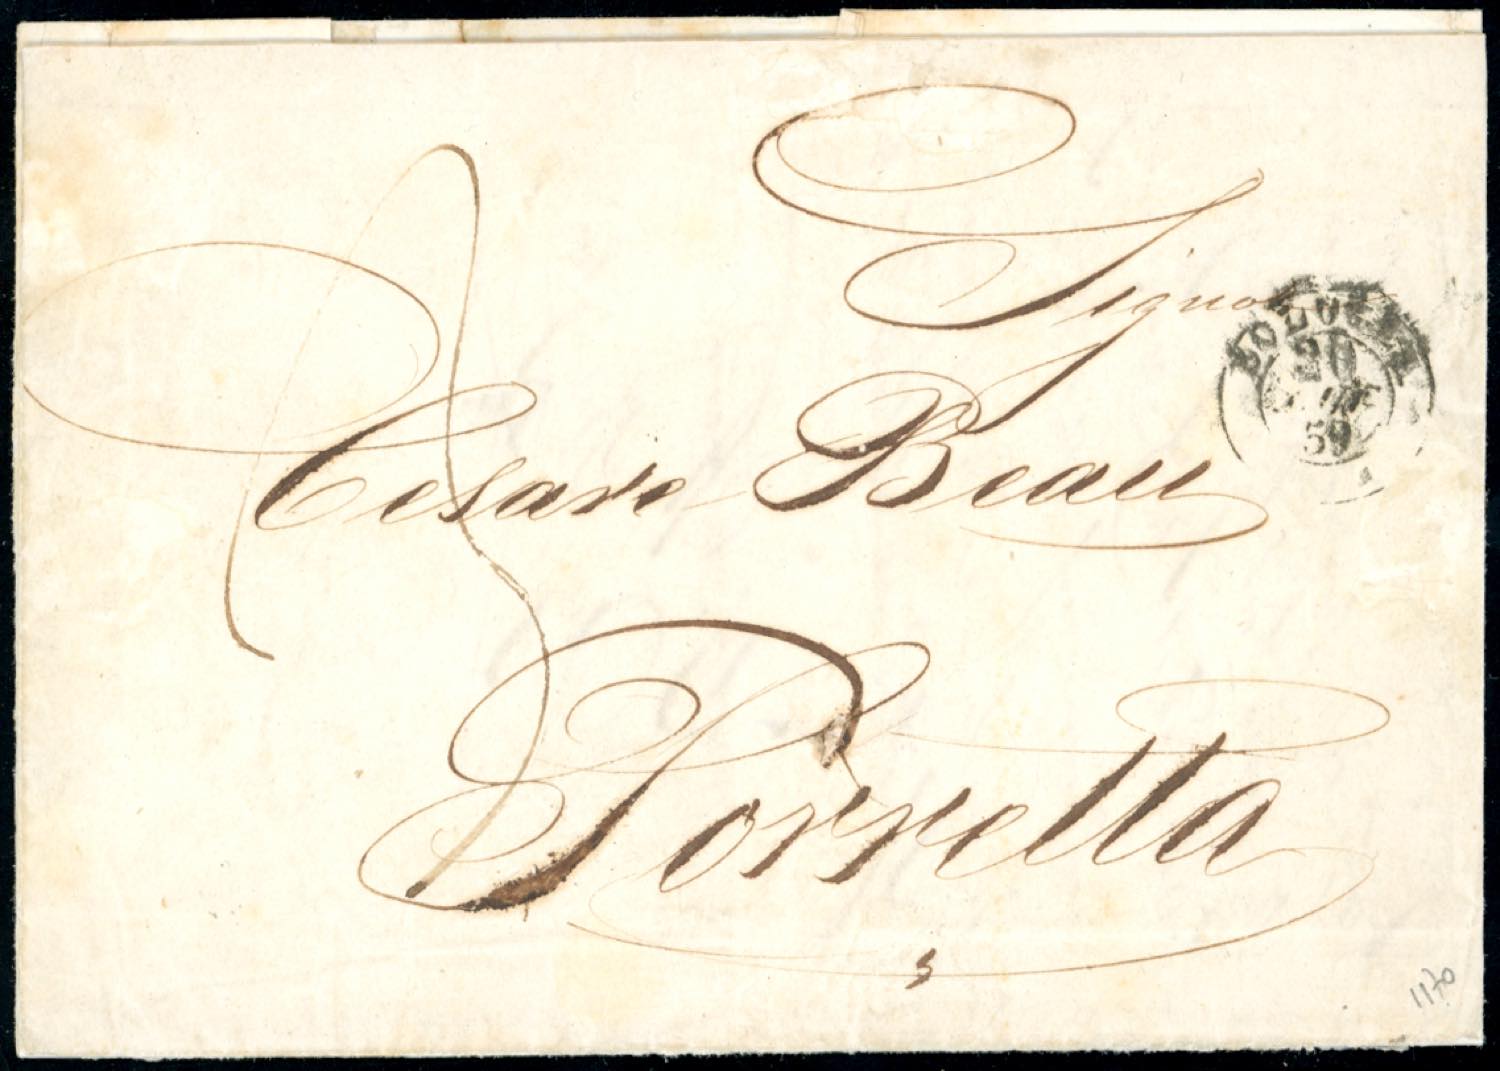 Signor
BOLOGNA
20
59
Cesare Beau
Porretta
1170